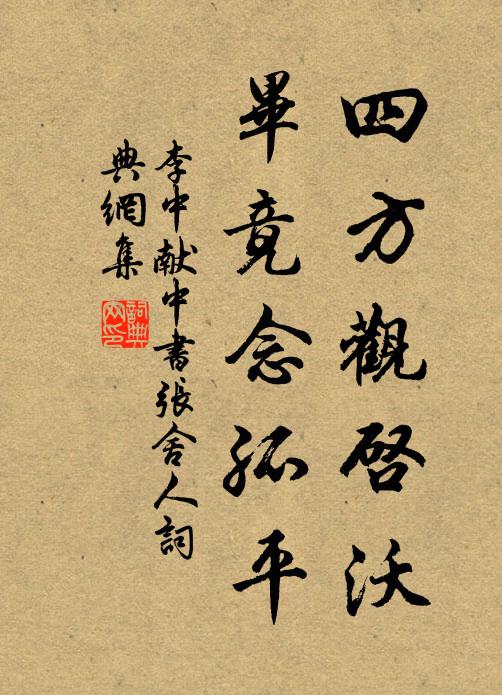 四方觀啓沃
畢竟念孤平
李中献中書張舍人詞
典網集
詞典
网印